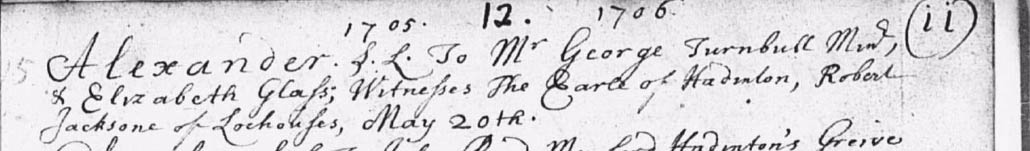 1705. 12. 1706. 11
15 Alexander. S. L. To Mr George Turnbull Minr,
& Elizabeth Glass; Witnesses The Earle of Hadinton, Robert
Jacksone of Lochouses, May 20th.
My Lord Hadinton's Greive